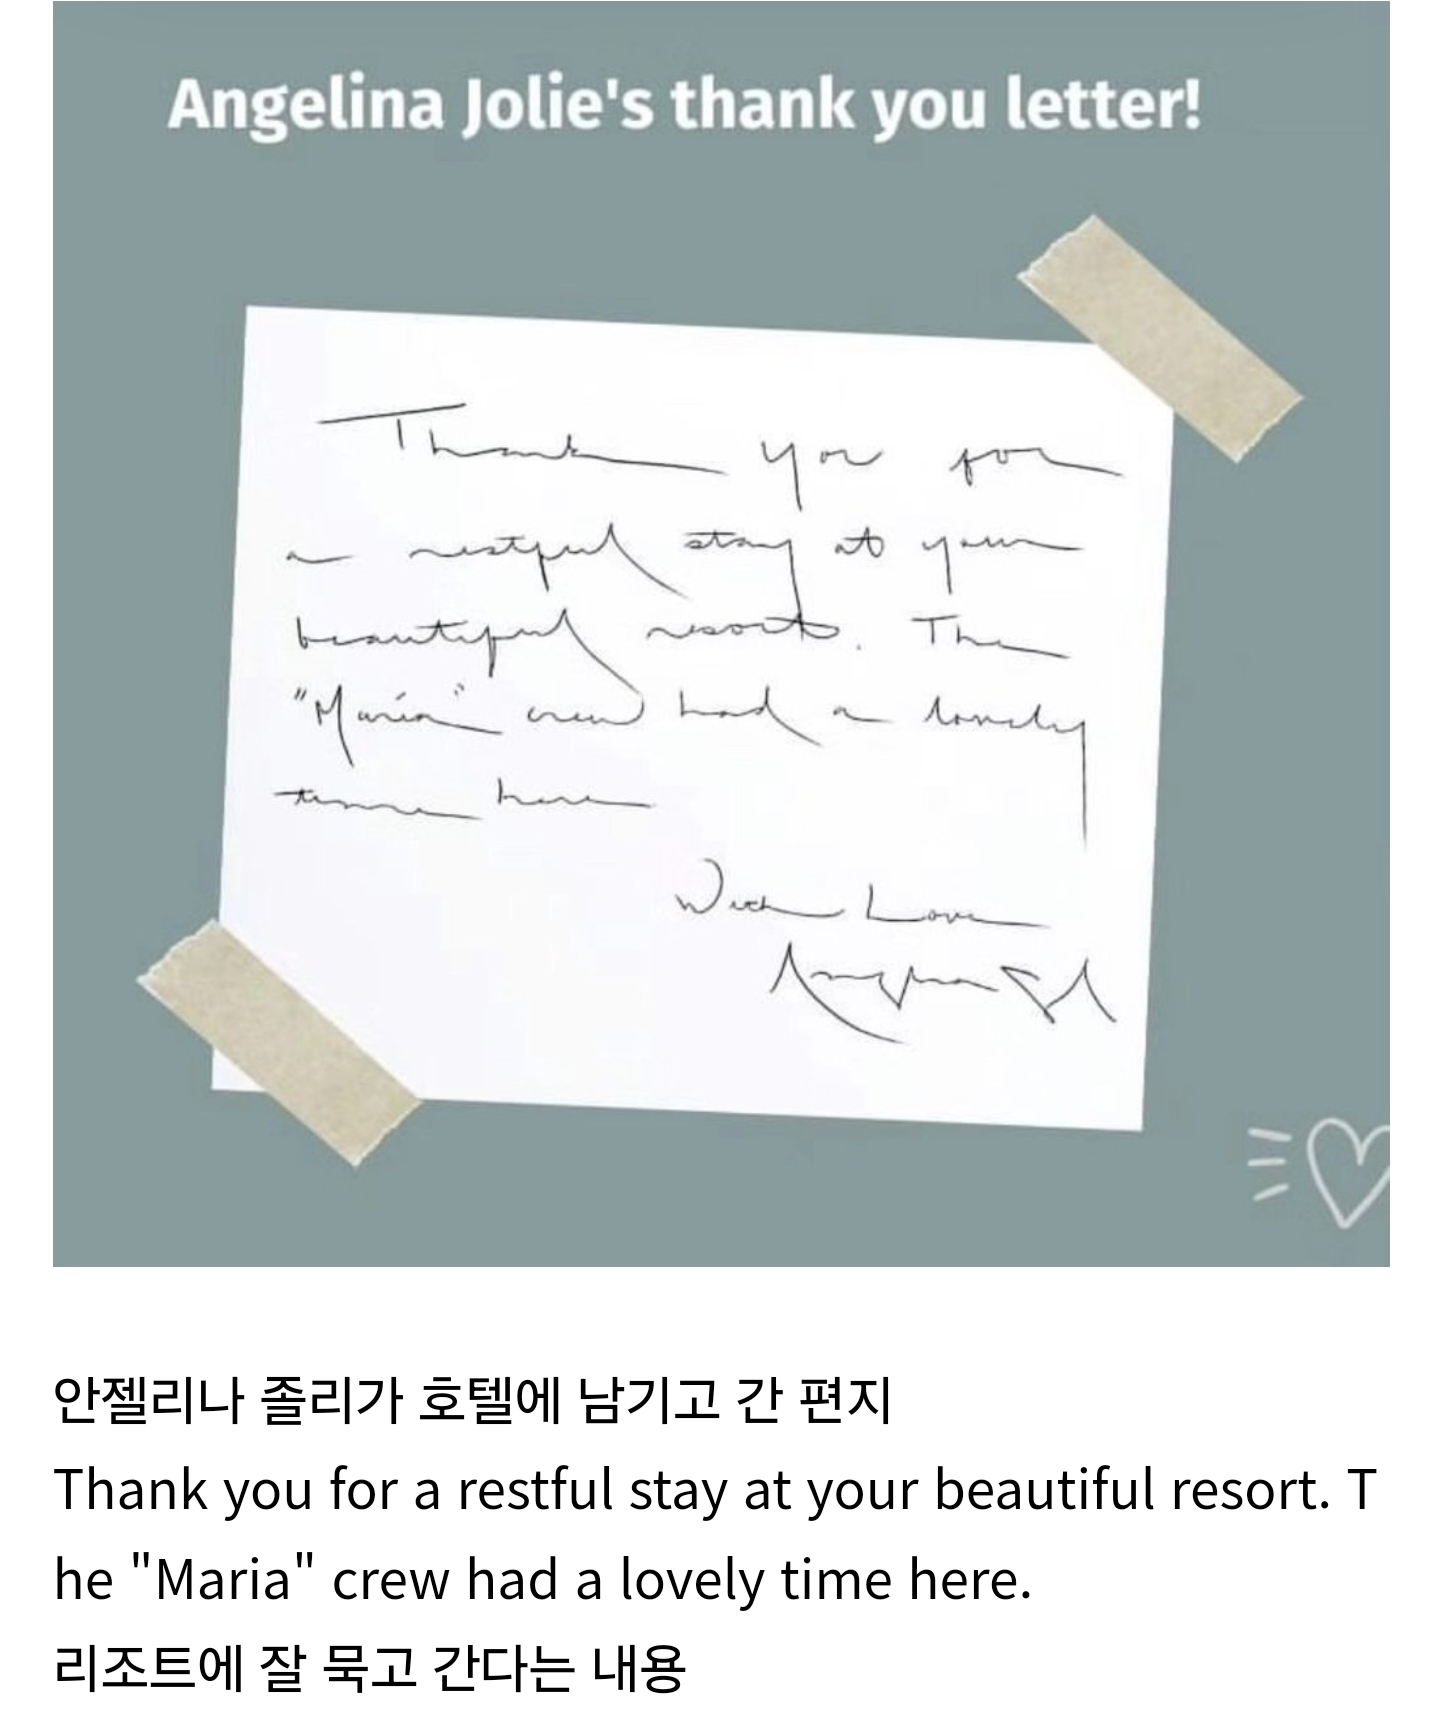 Angelina Jolie's thank you letter!
Thank you for
a restful stay at your
beautiful resort. The
"Maria" crew had a lovely
time here
With Love
Angelina Jol
안젤리나 졸리가 호텔에 남기고 간 편지
Thank you for a restful stay at your beautiful resort. T
he "Maria" crew had a lovely time here.
리조트에 잘 묵고 간다는 내용